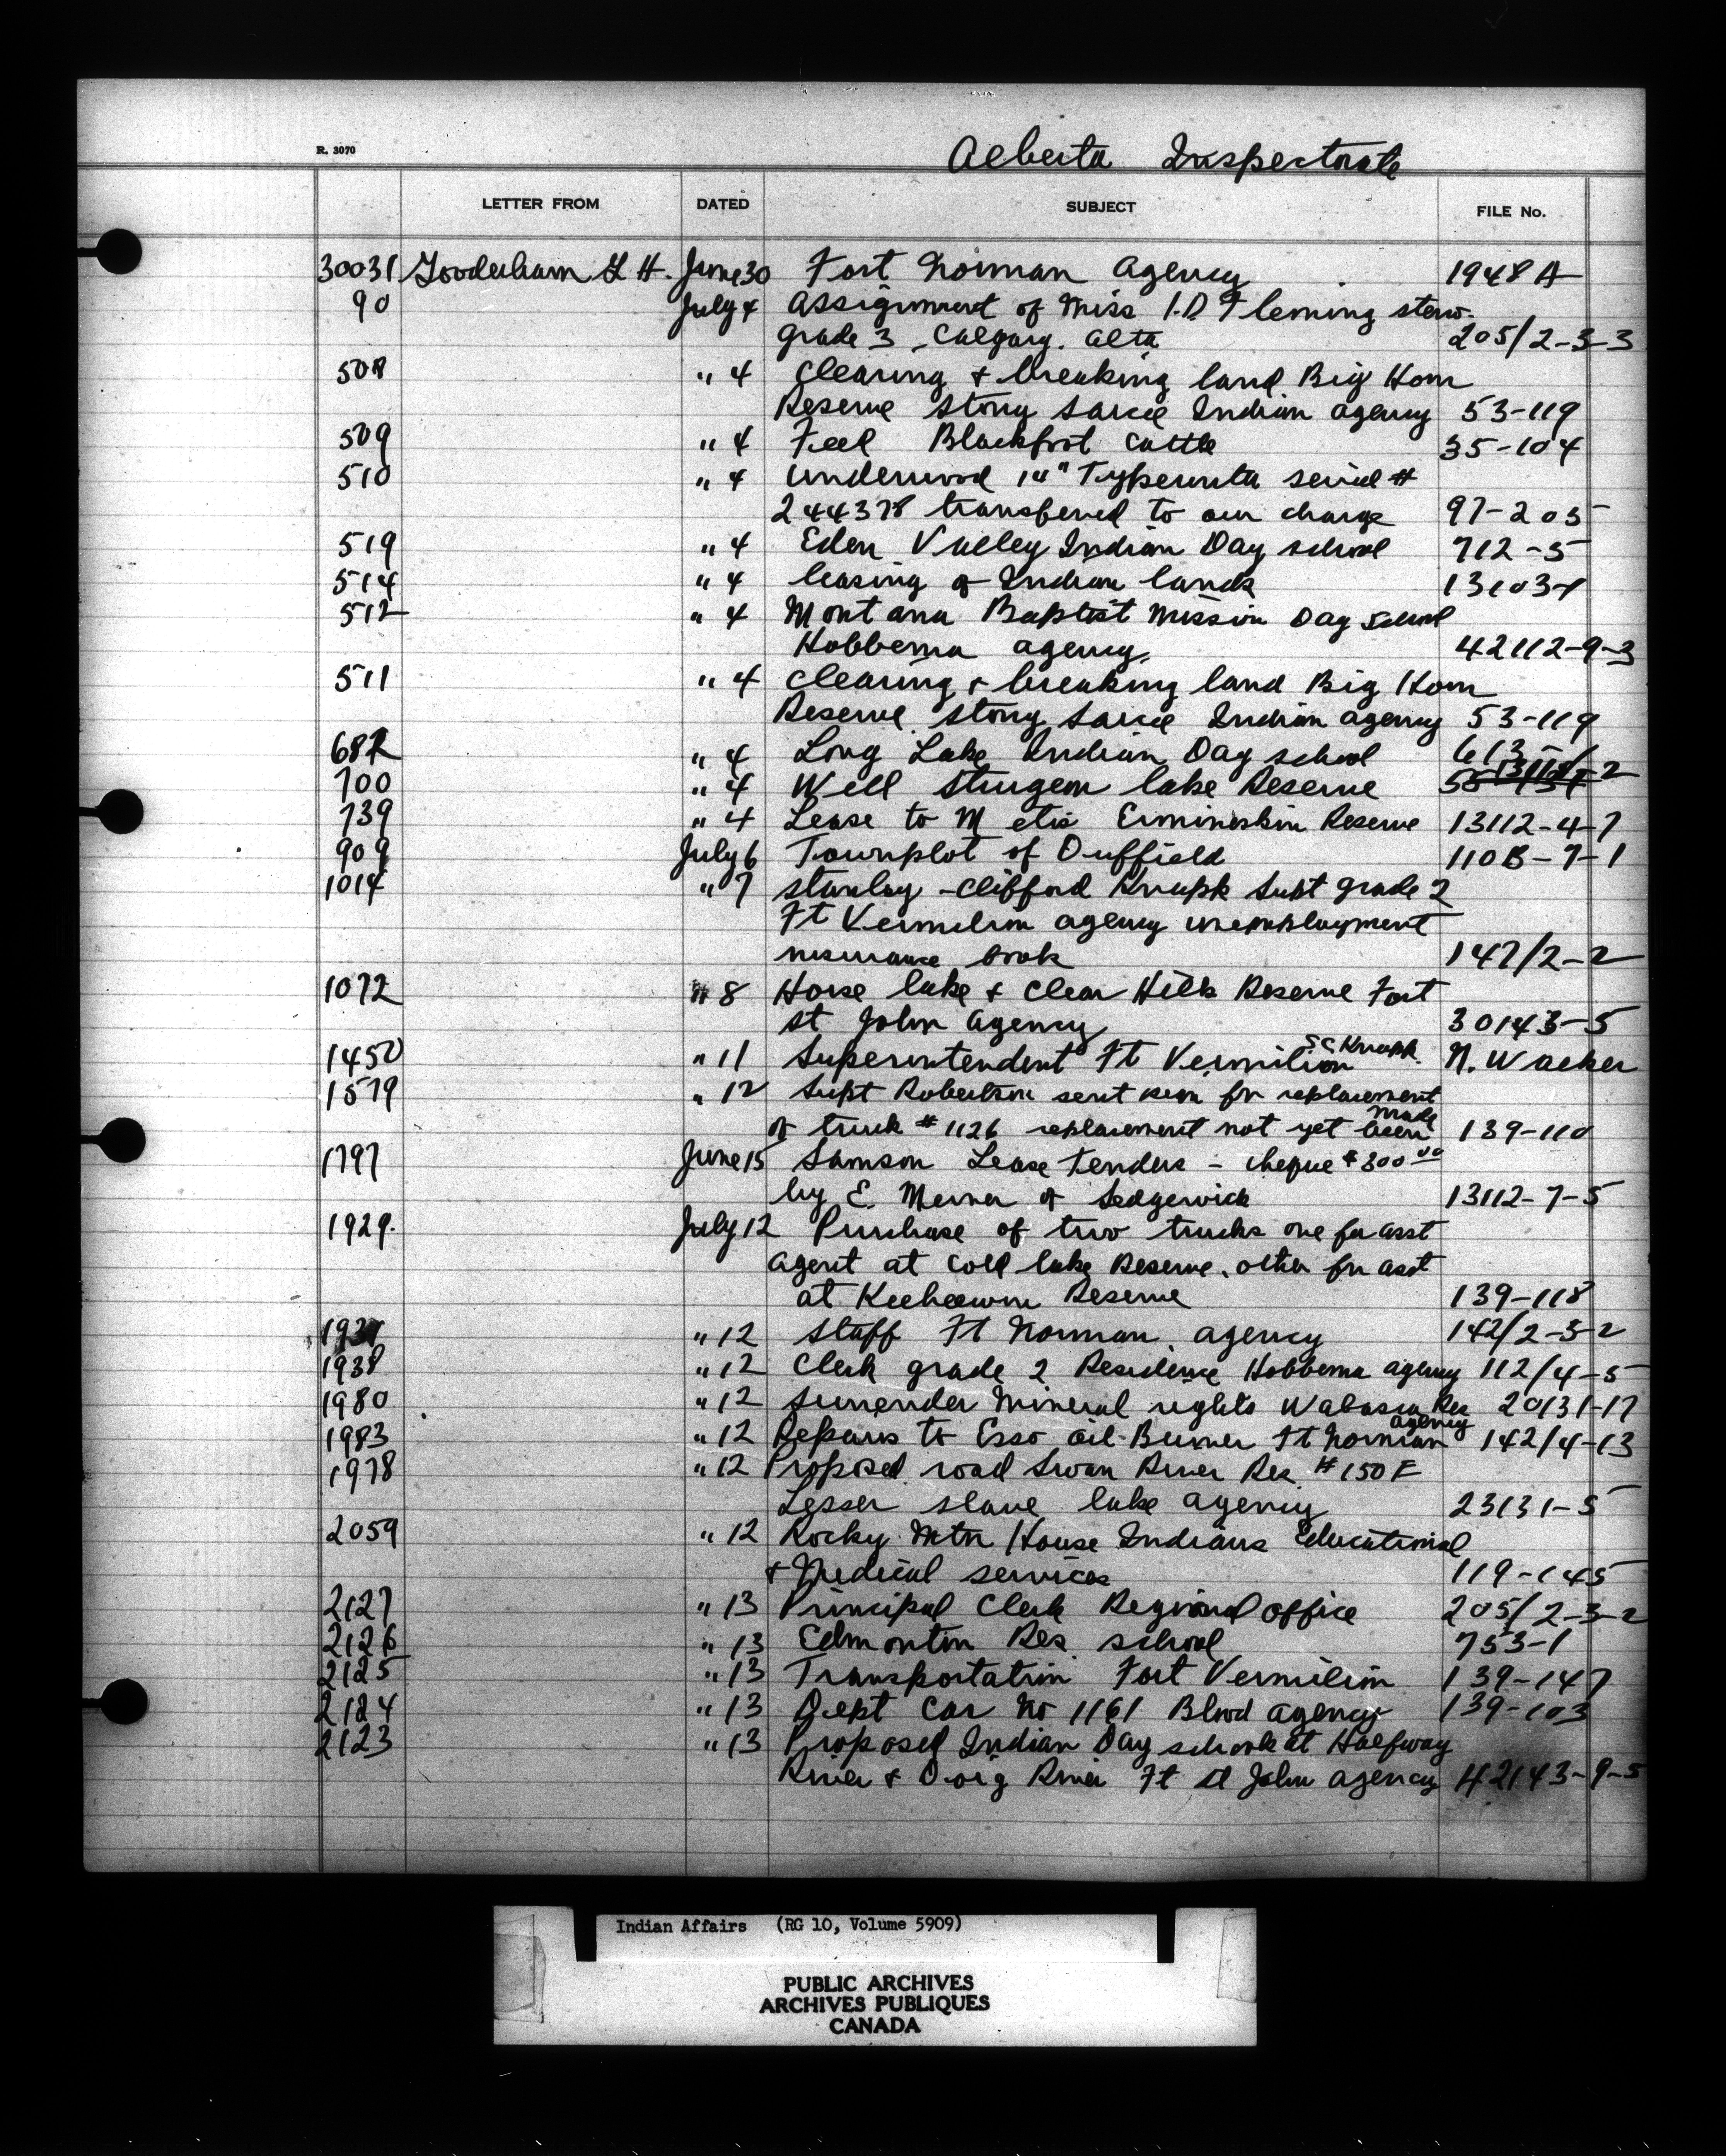 R. 3070
Alberta Inspectorate
LETTER FROM DATED SUBJECT FILE No.
30031 Gooderham G H. June 30 Fort Norman Agency 1948 A
90 July 4 Assignment of Miss I.D Fleming steno.
grade 3 - Calgary. Alta 205/2-3-3
508 " 4 Clearing & breaking land Big Horn
Reserve Stony Sarcee Indian agency 53-119
509 " 4 Feed Blackfoot Cattle 35-104
510 " 4 Underwood 14" Typewriter serial #
244378 transfered to our charge 97-205
519 " 4 Eden Valley Indian Day school 712-5
514 " 4 leasing of Indian lands
512 " 4 Montana Baptist Mission Day School
Hobbema agency. 42112-9-3
511 " 4 Clearing & breaking land Big Horn
Reserve Stony Sarcee Indian agency 53-119
682 " 4 Long Lake Indian Day school
700 " 4 Well Sturgeon lake Reserve
739 " 4 Lease to Metis Ermineskin Reserve 13112-4-7
909 July 6 Townplot of Duffield 110B-7-1
1014 " 7 Stanley-Clifford Knapp Supt grade 2
Ft Vermilion agency unemployment
insurance book 147/2-2
1072 " 8 Horse lake & Clear Hills Reserve Fort
St John Agency 30143-5
1450 " 11 Superintendent Ft Vermilion S C Knapp. N. Walker
1579 " 12 Supt Robertson sent for replacement
of truck # 1126 replacement not yet been made 139-110
1797 June 15 Samson Lease tenders - cheque $300.00
by E. of Sedgewick 13112-7-5
1929. July 12 Purchase of two trucks one for asst
Agent at Cold lake Reserve, other for asst
at Keeheewin Reserve 139-118
1937 " 12 Staff Ft Norman agency 142/2-3-2
1938 " 12 Clerk grade 2 Residence Hobbema agency 112/4-5
1980 " 12 Surrender Mineral rights Wabasca Res 20131-17
1983 " 12 Repairs to Esso oil Burner Ft Norman agency 142/4-13
1978 " 12 Proposed road Swan River Res # 150 E
Lesser slave lake agency 23131-5
2059 " 12 Rocky Mtn House Indians Educational
& Medical services 119-145
2127 " 13 Principal Clerk Regional office 205/2-3-2
2126 " 13 Edmonton Res school 753-1
2125 " 13 Transportation Fort Vermilion 139-147
2124 " 13 Dept Car No 1161 Blood agency 139-103
2123 " 13 Proposed Indian Day school at Halfway
River & Doig River Ft St John agency 42143-9-5
Indian Affairs (RG 10, Volume 5909)
PUBLIC ARCHIVES
ARCHIVES PUBLIQUES
CANADA